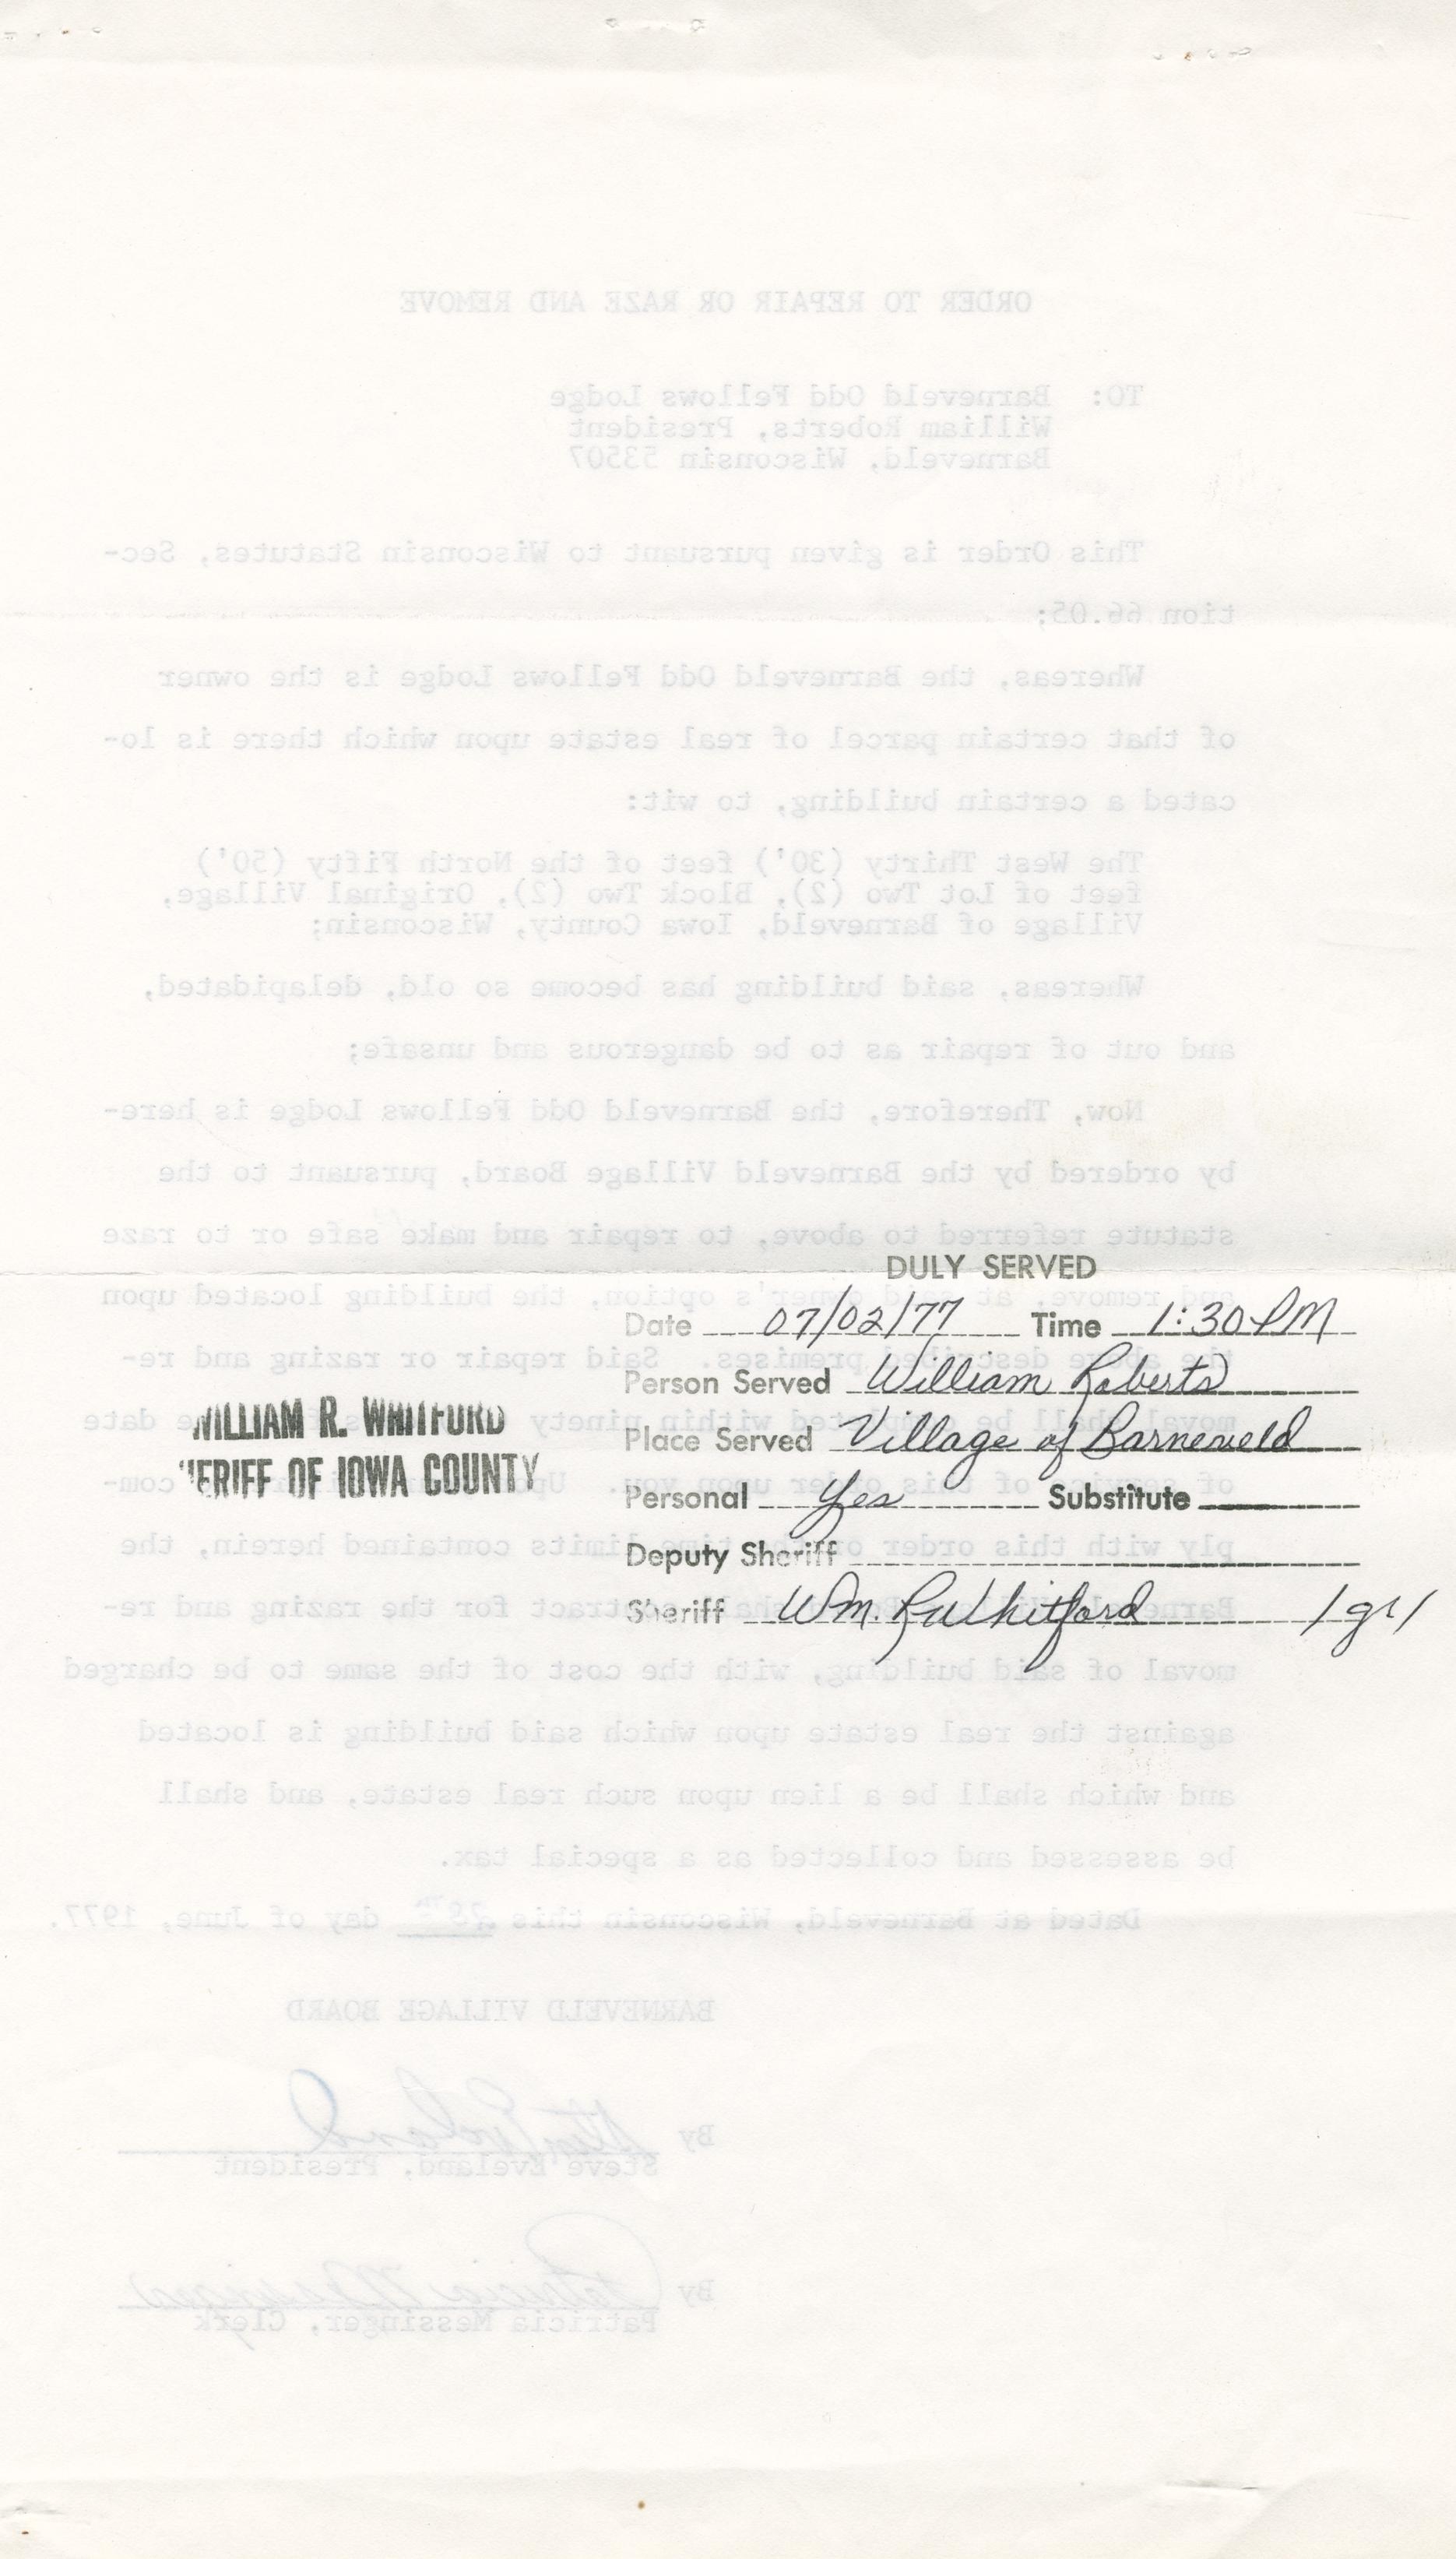 ORDER TO REPAIR OR RAZE AND REMOVE
TO: Barneveld Odd Fellows Lodge
William Roberts, President
Barneveld, Wisconsin 53507
This Order is given pursuant to Wisconsin Statutes, Sec-
tion 66.05;
Whereas, the Barneveld Odd Fellows Lodge is the owner
of that certain parcel of real estate upon which there is lo-
cated a certain building, to wit:
The West Thirty (30') feet of the North Fifty (50')
feet of Lot Two (2), Block Two (2), Original Village,
Village of Barneveld, Iowa County, Wisconsin;
Whereas, said building has become so old, delapidated,
and out of repair as to be dangerous and unsafe;
Now, Therefore, the Barneveld Odd Fellows Lodge is here-
by ordered by the Barneveld Village Board, pursuant to the
statute referred to above, to repair and make safe or to raze
and remove, at said owner's option, the building located upon
the above described premises. Said repair or razing and re-
moval shall be completed within ninety date
of service of this order upon you. com-
ply with this order or the time limits contained herein, the
Barneveld Village Board shall contract for the razing and re-
moval of said building, with the cost of the same to be charged
against the real estate upon which said building is located
and which shall be a lien upon such real estate, and shall
be assessed and collected as a special tax.
Dated at Barneveld, Wisconsin this 28th day of June, 1977.
BARNEVELD VILLAGE BOARD
By Steve Eveland
Steve Eveland, President
By Patricia Messinger
Patricia Messinger, Clerk
WILLIAM R. WHITFORD
SHERIFF OF IOWA COUNTY
DULY SERVED
Date 07/02/77 Time 1:30 PM
Person Served William Roberts
Place Served Village of Barneveld
Personal Yes Substitute
Deputy Sheriff
Sheriff Wm. R Whitford